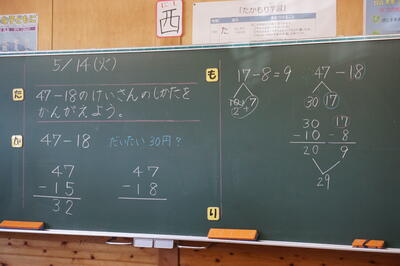 西
「たかもり学習」
5/14(火)
た
47-18のけいさんのしかたを
かんがえよう。
か
47-18
だいたい30円?
47
-15
32
47
-18
も
17-8=9
10 7
2+7
47-18
30 17
30
-10
20
17
-8
9
29
り